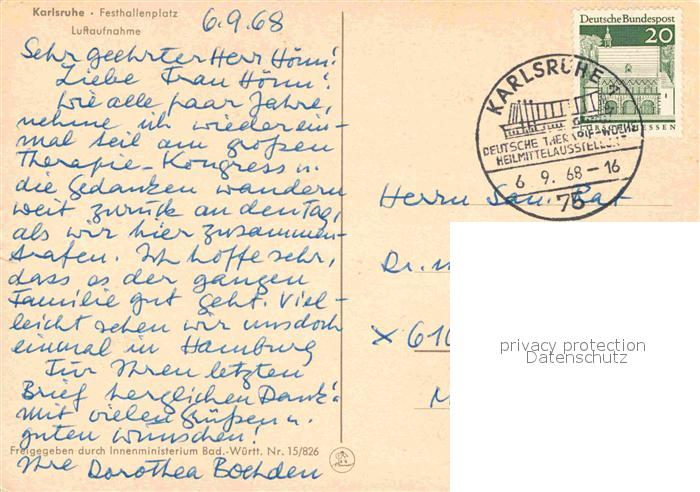 Karlsruhe · Festhallenplatz
Luftaufnahme
6.9.68
Sehr geehrter Herr Hömi!
Liebe Frau Hömi!
Wie alle paar Jahre,
nehme ich wieder ein-
mal teil am großen
Therapie-Kongress u.
die Gedanken wandern
weit zurück an den Tag,
als wir hier zusammen-
trafen. Ich hoffe sehr,
dass es der ganzen
Familie gut geht. Viel-
leicht sehen wir uns doch
einmal in Hamburg
Für Ihren letzten
Brief herzlichen Dank!
mit vielen Grüßen u.
guten wünschen!
Ihre Dorothea
Freigegeben durch Innenministerium Bad.-Württ. Nr. 15/826
Deutsche Bundespost
20
LORSCH/HESSEN
KARLSRUHE
DEUTSCHE THERAPIE-WOCHE
HEILMITTELAUSSTELLUNG
6. 9. 68 - 16
75
Herrn San. Rat
Dr. m
x 616
privacy protection
Datenschutz